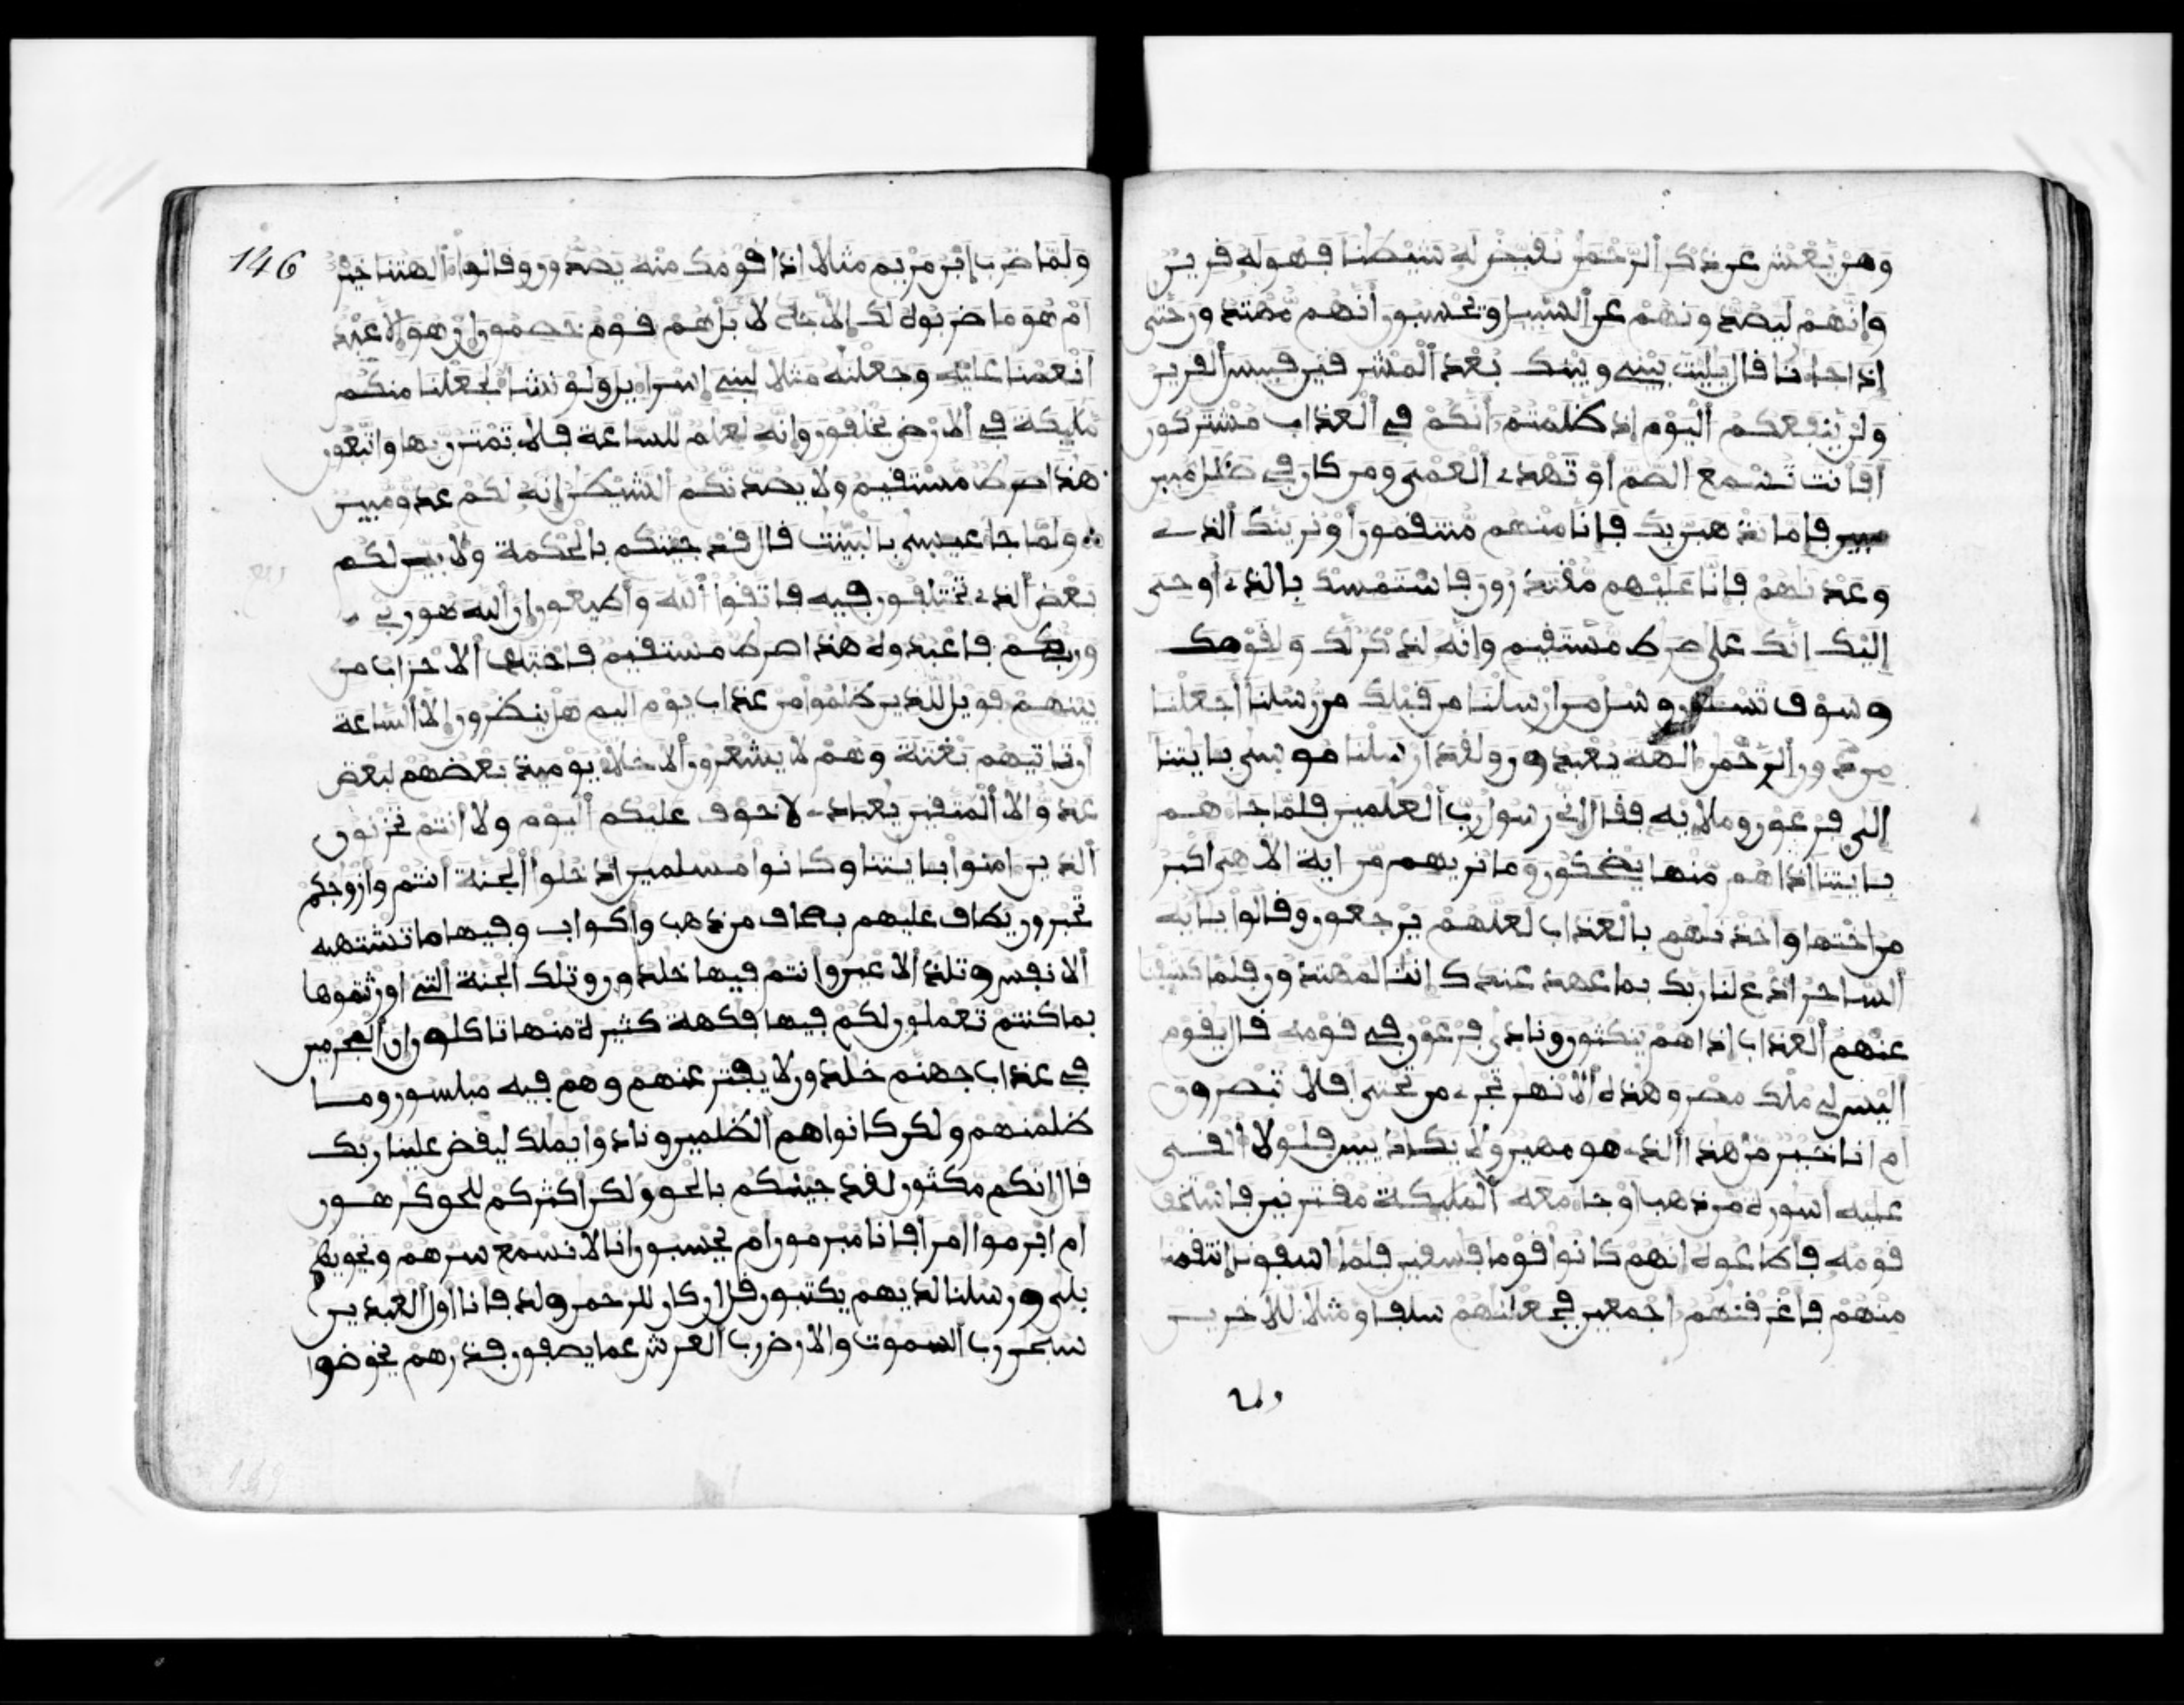 ومن يعش عن ذكر الرحمن نقيض له شيطنا فهو له قرين
وإنهم ليصدونهم عن السبيل وتحسبون أنهم مهتدون حتى
إذا جاءنا قال يليت بيني وبينك بعد المشرقين فبيس القرين
ولن ينفعكم اليوم إذ ظلمتم أنكم في العذاب مشتركون
أفأنت تسمع الصم أو تهدي العمي ومن كان في ضلل مبين
فإما نذهبن بك فإنا منهم منتقمون أو نرينك الذي
وعدنهم فإنا عليهم مقتدرون فاستمسك بالذي أوحي
إليك إنك على صرط مستقيم وإنه لذكر لك ولقومك
وسوف تسلون وسل من أرسلنا من قبلك من رسلنا أجعلنا
من دون الرحمن الهة يعبدون ولقد أرسلنا موسى بايتنا
إلى فرعون وملإيه فقال إني رسول رب العلمين فلما جاءهم
بايتنا إذا هم منها يضحكون وما نريهم من اية إلا هي أكبر
من أختها وأخذنهم بالعذاب لعلهم يرجعون وقالوا يأيه
الساحر ادع لنا ربك بما عهد عندك إننا لمهتدون فلما كشفنا
عنهم العذاب إذا هم ينكثون ونادى فرعون في قومه قال يقوم
أليس لي ملك مصر وهذه الأنهر تجري من تحتي أفلا تبصرون
أم أنا خير من هذا الذي هو مهين ولا يكاد يبين فلولا ألقي
عليه أسورة من ذهب أو جاء معه المليكة مقترنين فاستخف
قومه فأطاعوه إنهم كانوا قوما فسقين فلما ءاسفونا انتقمنا
منهم فأغرقنهم أجمعين فجعلنهم سلفا ومثلا للأخرين
ولما
146
ولما ضرب ابن مريم مثلا إذا قومك منه يصدون وقالوا ءالهتنا خير
أم هو ما ضربوه لك إلا جدلا بل هم قوم خصمون إن هو إلا عبد
أنعمنا عليه وجعلنه مثلا لبني إسراءيل ولو نشاء لجعلنا منكم
مليكة في الأرض يخلفون وإنه لعلم للساعة فلا تمترن بها واتبعون
هذا صرط مستقيم ولا يصدنكم الشيطن إنه لكم عدو مبين
ولما جاء عيسى بالبينت قال قد جيتكم بالحكمة ولأبين لكم
بعض الذي تختلفون فيه فاتقوا الله وأطيعون إن الله هو ربي
وربكم فاعبدوه هذا صرط مستقيم فاختلف الأحزاب من
بينهم فويل للذين ظلموا من عذاب يوم أليم هل ينظرون إلا الساعة
أن تاتيهم بغتة وهم لا يشعرون الأخلاء يوميذ بعضهم لبعض
عدو إلا المتقين يعبادي لا خوف عليكم اليوم ولا أنتم تحزنون
الذين امنوا بايتنا وكانوا مسلمين ادخلوا الجنة أنتم وأزوجكم
تحبرون يطاف عليهم بصحاف من ذهب وأكواب وفيها ما تشتهيه
الأنفس وتلذ الأعين وأنتم فيها خلدون وتلك الجنة التي أورثتموها
بما كنتم تعملون لكم فيها فكهة كثيرة منها تاكلون إن المجرمين
في عذاب جهنم خلدون لا يفتر عنهم وهم فيه مبلسون وما
ظلمنهم ولكن كانوا هم الظلمين ونادوا يملك ليقض علينا ربك
قال إنكم مكثون لقد جينكم بالحق ولكن أكثركم للحق كرهون
أم ابرموا أمرا فإنا مبرمون أم يحسبون أنا لا نسمع سرهم ونجويهم
بلى ورسلنا لديهم يكتبون قل إن كان للرحمن ولد فأنا أول العبدين
سبحن رب السموت والأرض رب العرش عما يصفون فذرهم يخوضوا